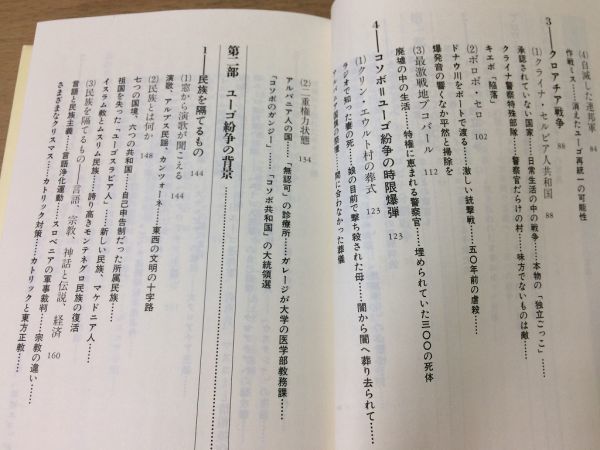 (4) 自滅した連邦軍 84
作戦ミス……消えたユーゴ再統一の可能性
3──クロアチア戦争 88
(1) クライナ・セルビア人共和国 88
承認されていない国家……日常生活の中の戦争……本物の「独立ごっこ」……
クライナ警察特殊部隊……警察官だらけの村……味方でないものは敵……
キエボ「陥落」
(2) ボロボ・セロ 102
ドナウ川をボートで渡る……激しい銃撃戦……五〇年前の虐殺……
爆発音の響くなか平然と掃除を
(3) 最激戦地ブコバール 112
廃墟の中の生活……特権に恵まれる警察官……埋められていた三〇〇の死体
4──コソボ=ユーゴ紛争の時限爆弾 123
(1) クリン・エウルト村の葬式 123
ラジオで知った妻の死……娘の目前で撃ち殺された母……闇から闇へ葬り去られて……
間に合わなかった葬儀
(2) 二重権力状態 134
アルバニア人の国……「無認可」の診療所……ガレージが大学の医学部教務課……
「コソボのガンジー」……「コソボ共和国」の大統領選
第二部 ユーゴ紛争の背景
1──民族を隔てるもの 144
(1) 窓から演歌が聞こえる 144
演歌、アルプス民謡、カンツォーネ……東西の文明の十字路
(2) 民族とは何か 148
七つの国境、六つの共和国……自己申告制だった所属民族……
祖国を失った「ユーゴスラビア人」……新しい民族、マケドニア人……
イスラム教とムスリム民族……誇り高きモンテネグロ民族の復活
(3) 民族を隔てるもの──言語、宗教、神話と伝説、経済 160
言語と民族主義……言語浄化運動……スロベニアの軍事裁判……宗教の違い……
さまざまなクリスマス……カトリック対策……カトリックと東方正教……